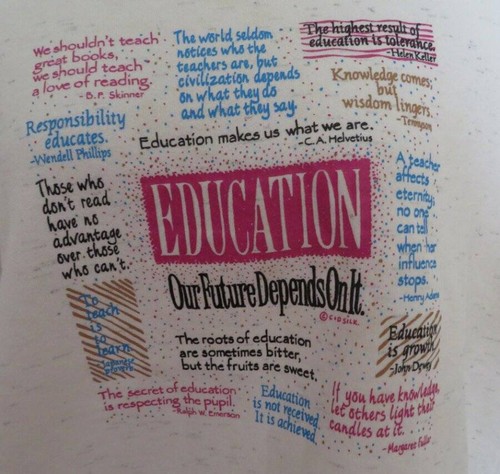 We shouldn't teach
great books,
we should teach
a love of reading.
-B.F. Skinner
The world seldom
notices who the
teachers are, but
civilization depends
on what they do
and what they say.
The highest result of
education is tolerance.
-Helen Keller
Knowledge comes,
but
wisdom lingers.
-Tennyson
Responsibility
educates.
-Wendell Phillips
Education makes us what we are.
-C. A. Helvetius
Those who
don't read
have no
advantage
over those
who can't.
EDUCATION
Our Future Depends On It.
A teacher
affects
eternity;
no one
can tell
when her
influence
stops.
-Henry Adams
To
teach
is
to
learn.
Japanese
proverb
The roots of education
are sometimes bitter,
but the fruits are sweet.
Education
is growth
-John Dewey
The secret of education
is respecting the pupil.
-Ralph W. Emerson
Education
is not received.
It is achieved.
If you have knowledge,
let others light their
candles at it.
-Margaret Fuller